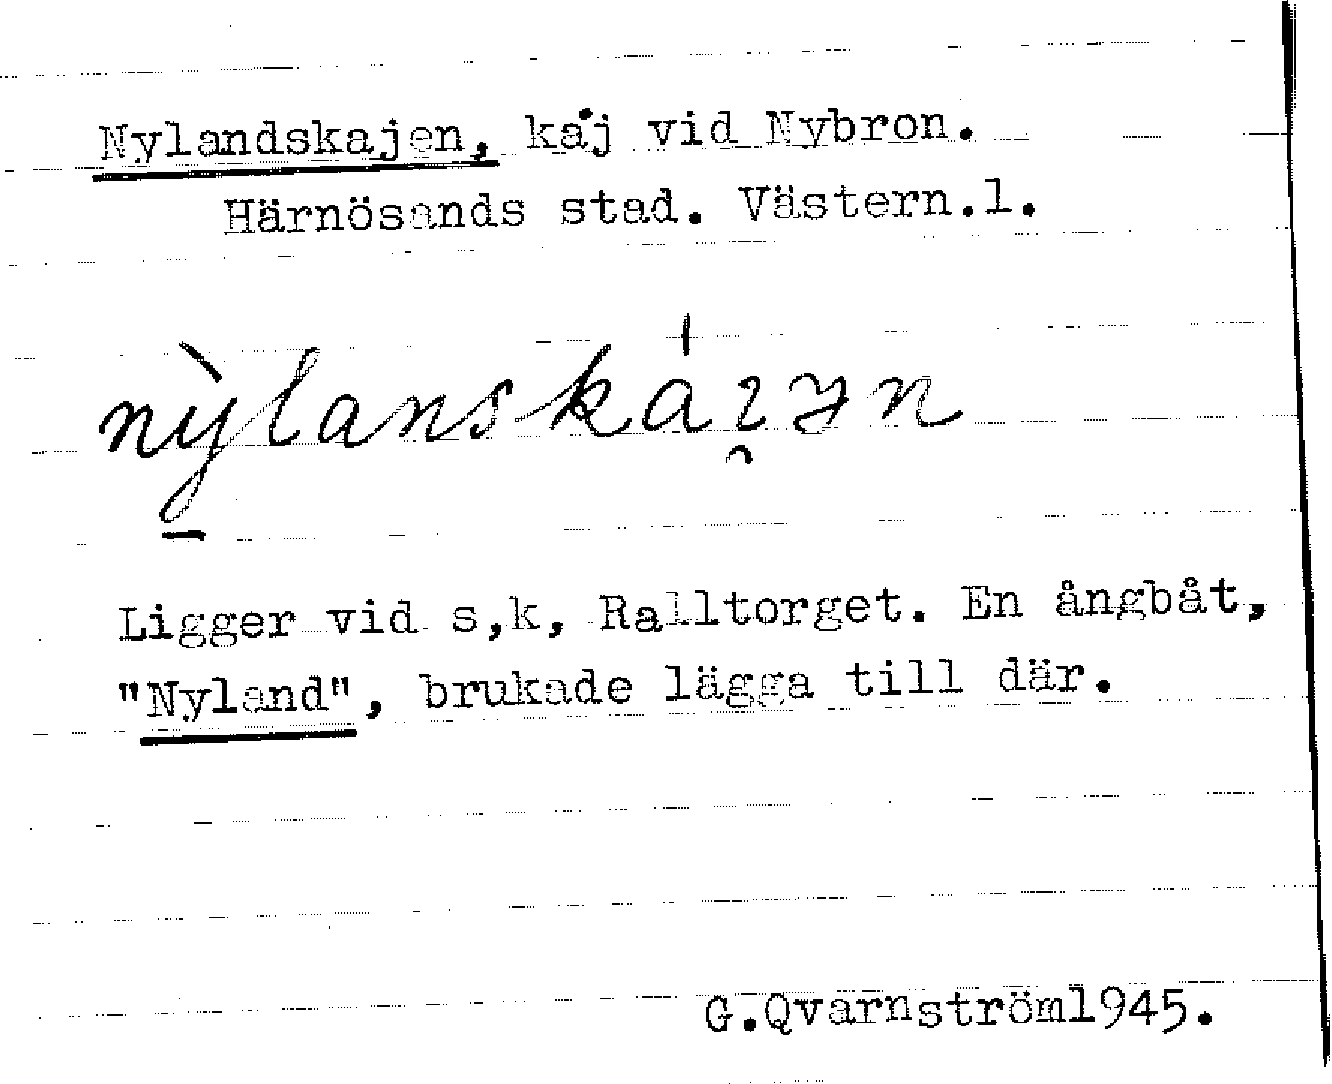 Nylandskajen, kaj vid Nybron.
Härnösands stad. Västern.l.
Ligger vid s,k, Ralltorget. En ångbåt,
"Nyland", brukade lägga till där.
G.Qvarnström1945.